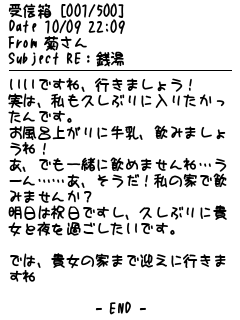 受信箱 [001/500]
Date 10/09 22:09
From 菊さん
Subject RE：銭湯
いいですね、行きましょう！
実は、私も久しぶりに入りたかっ
たんです。
お風呂上がりに牛乳、飲みましょ
うね！
あ、でも一緒に飲めませんね…う
ーん……あ、そうだ！私の家で飲
みませんか？
明日は祝日ですし、久しぶりに貴
女と夜を過ごしたいです。
では、貴女の家まで迎えに行きま
すね
- END -